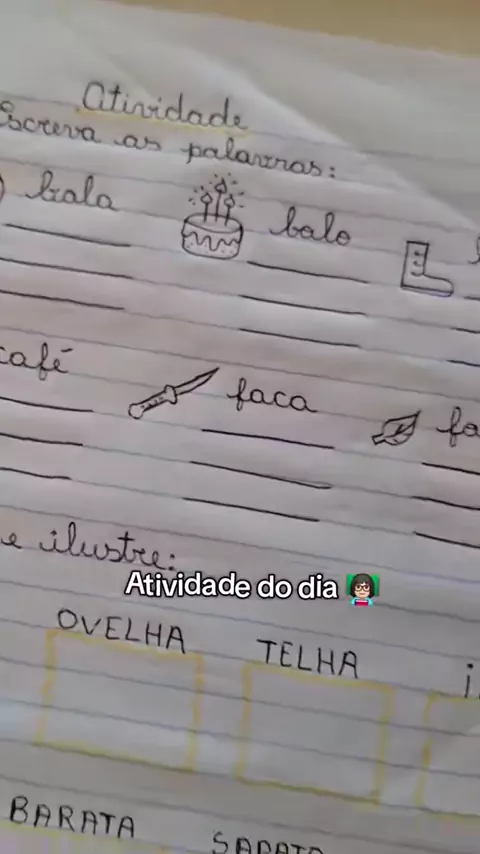 Atividade
Escreva as palavras:
bala
balo
café
faca
fa
e ilustre:
Atividade do dia 👩🏻‍🏫
OVELHA
TELHA
BARATA
SAPATO